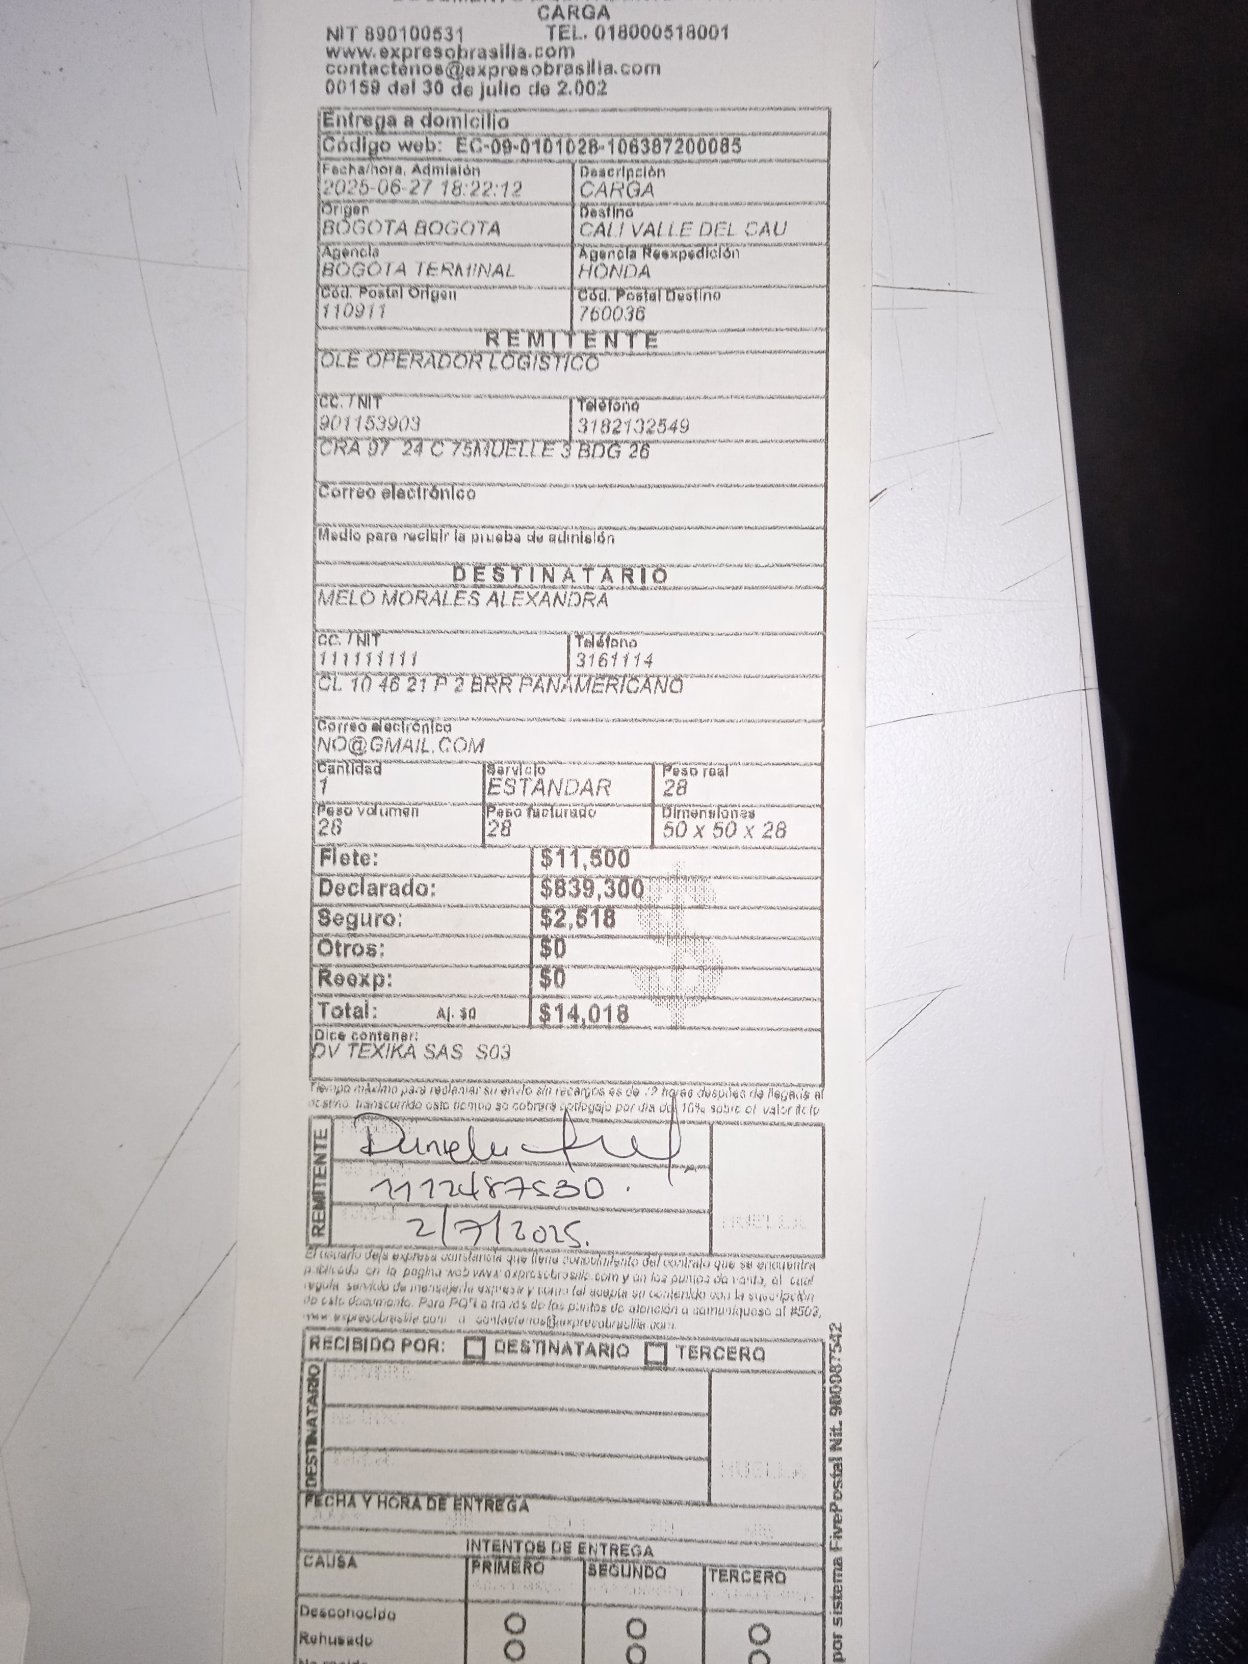 CARGA
NIT 890100531 TEL. 018000518001
www.expresobrasilia.com
contactenos@expresobrasilia.com
00159 del 30 de julio de 2.002
Entrega a domicilio
Código web: EC-09-0101028-106387200085
Fecha/hora, Admisión Descripción
2025-06-27 18:22:12 CARGA
Origen Destino
BOGOTA BOGOTA CALI VALLE DEL CAU
Agencia Agencia Reexpedición
BOGOTA TERMINAL HONDA
Cód. Postal Origen Cód. Postal Destino
110911 760036
REMITENTE
OLE OPERADOR LOGISTICO
CC. / NIT Teléfono
901153903 3182132549
CRA 97 24 C 75MUELLE 3 BDG 26
Correo electrónico
Medio para recibir la prueba de admisión
DESTINATARIO
MELO MORALES ALEXANDRA
CC. / NIT Teléfono
111111111 3161114
CL 10 46 21 P 2 BRR PANAMERICANO
Correo electrónico
NO@GMAIL.COM
Cantidad Servicio Peso real
1 ESTANDAR 28
Peso volumen Peso facturado Dimensiones
28 28 50 x 50 x 28
Flete: $11,500
Declarado: $839,300
Seguro: $2,518
Otros: $0
Reexp: $0
Total: Aj. $0 $14,018
Dice contener:
DV TEXIKA SAS S03
Tiempo máximo para reclamar su envío sin recargos es de 72 horas después de llegada al
destino, transcurrido este tiempo se cobrará bodegaje por día del 10% sobre el valor de
REMITENTE
1112487530.
2/7/2025.
HUELLA
El usuario deja expresa constancia que tiene conocimiento del contrato que se encuentra
publicado en la pagina web www.expresobrasilia.com y en los puntos de venta, el cual
regula servicio de mensajería expresa y como tal acepta su contenido con la suscripción
de este documento. Para PQR a través de los puntos de atención o comuníquese al #503,
www.expresobrasilia.com o contactenos@expresobrasilia.com.
RECIBIDO POR: DESTINATARIO TERCERO
DESTINATARIO
HUELLA
FECHA Y HORA DE ENTREGA
INTENTOS DE ENTREGA
CAUSA PRIMERO SEGUNDO TERCERO
Desconocido
Rehusado
por sistema FivePostal Nit. 900087542